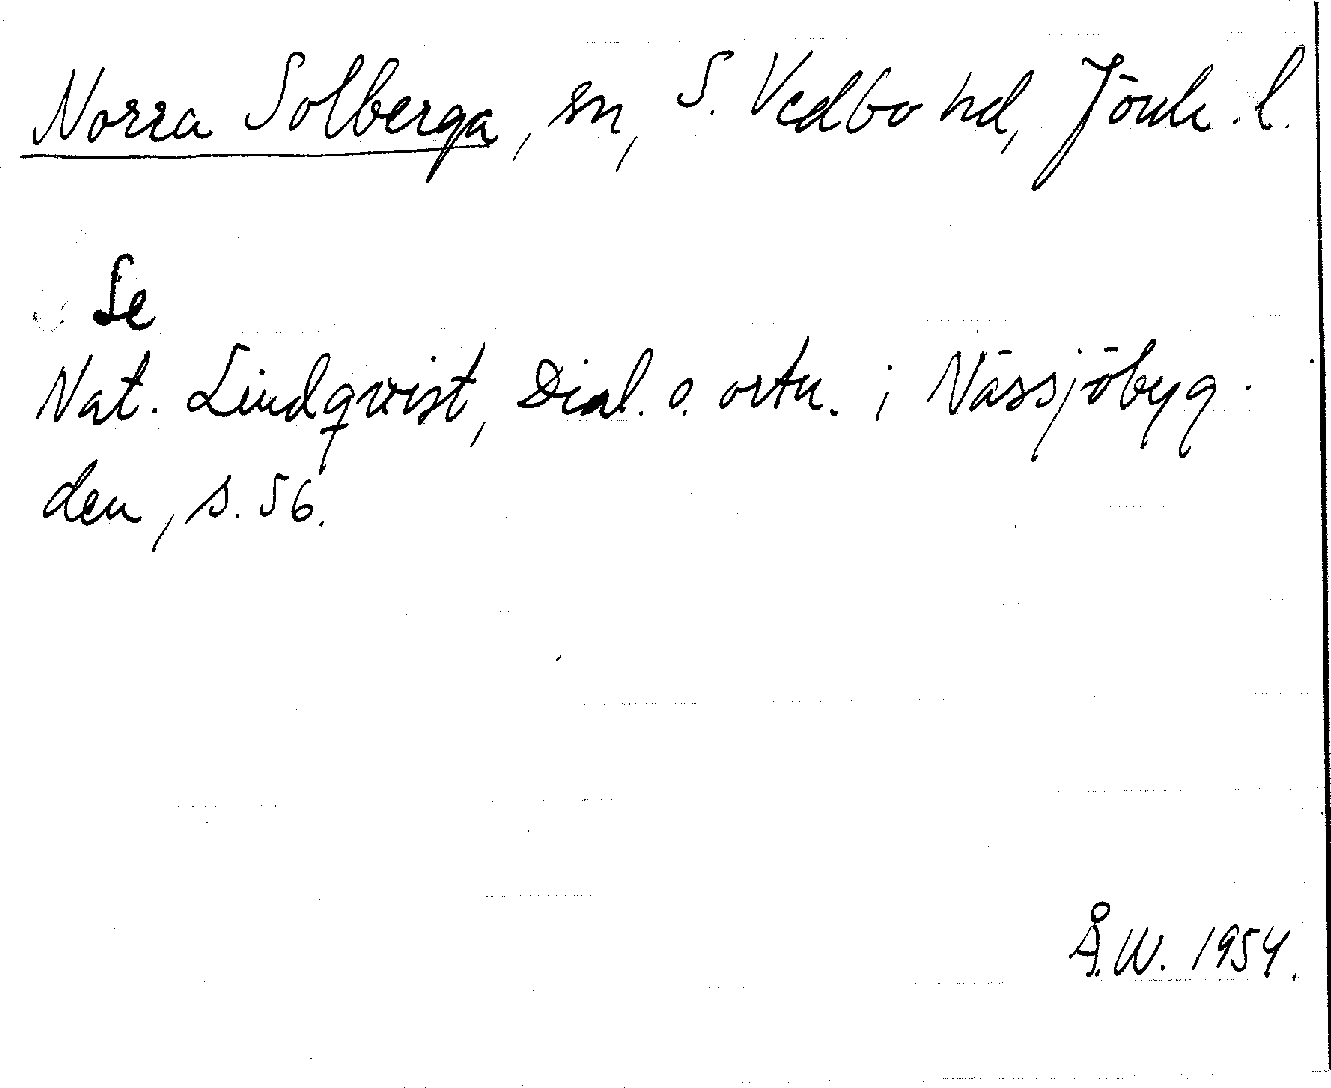 Norra Solberga, sn, S. Vedbo hd, Jönk. l.
Se
Nat. Lindqvist, Dial. o. ortn. i Nässjöbyg-
den, s. 56.
Å.W. 1954.